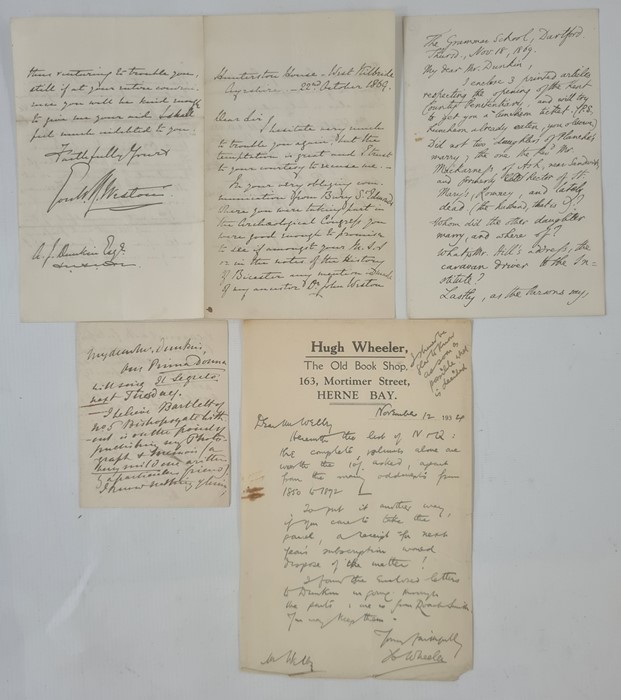 thus venturing to trouble you,
still if at your entire conven-
ience you will be kind enough
to give me your aid I shall
feel much indebted to you.
Faithfully Yours
Weston
A. J. Dunkin Esqr.
Hunterston House - West Kilbride
Ayrshire - 22nd October 1869.
Dear Sir,
I hesitate very much
to trouble you again, but the
temptation is great and I trust
to your courtesy to excuse me -
In your very obliging com-
munication from Bury St Edmunds
where you were taking part in
the Archæological Congress you
were good enough to promise
to see if amongst your M.S.S
or in the notes of the History
of Bicester any mention is made
of my ancestor Dr John Weston
The Grammar School, Dartford.
Thursd., Nov. 18, 1869.
My dear Mr. Dunkin,
I enclose 3 printed articles
respecting the opening of the Kent
County and will try
to get you a luncheon ticket. (P.S.
Luncheon already eaten, you
Did not two daughters of
marry; the one the Revd. Mr
of Ash, near Sandwich
and formerly Rector of St.
Mary's, Romney, and lately
dead (the husband, that is)?
Whom did the other daughter
marry, and where of?
What's Mr. Hill's address, the
caravan driver to the In-
stitute?
Lastly, as the Parsons say,
My dear Mr. Dunkin,
our Prima Donna
will sing Il Segreto
next Thursday.
I believe Bartlett of
No 5 Bishopsgate
out is on the point of
publishing my Photo-
graph & Memoir (a
very mild one written
by a particular friend)
I know nothing of him,
Hugh Wheeler,
The Old Book Shop,
163, Mortimer Street,
HERNE BAY.
I should be
glad to know
as soon as
possible what
is decided
November 12 1934
Dear Mr Welby
Herewith the list of N & Q:
the complete volumes alone are
worth the 10/- asked, apart
from the many oddments from
1850 to 1892
To put it another way,
if you care to take the
parcel, a receipt for next
years subscription would
dispose of the matter!
I found the enclosed letters
to Dunkin in going through
the parts; one is from Roach Smith
You may keep them.
Yours faithfully
H Wheeler
Mr Welby